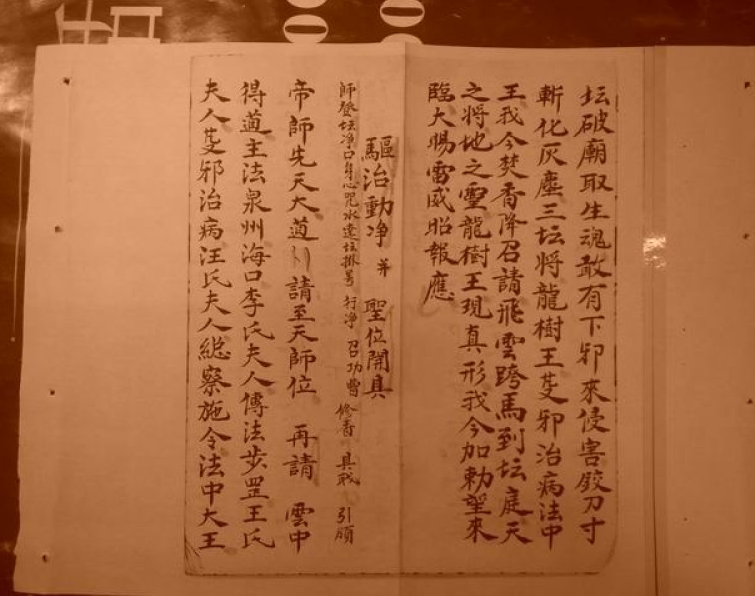 坛破廟取生魂敢有下邪來侵害餃刀寸
斬化灰塵三坛将龍樹王㸒邪治病法中
王我今焚香降召請飛雲跨馬到坛庭天
之将地之𤫊龍樹王現真形我今加勅望來
臨大賜雷威昭報應
驅治動净 并 聖位開具
師登坛净口身心咒水遶坛排 行净 召功曹 修香 具职 引願
帝師先天大道 請至天師位 再請 雲中
得道主法泉州海口李氏夫人傳法步罡王氏
夫人邪治病汪氏夫人總察施令法中大王
00
00